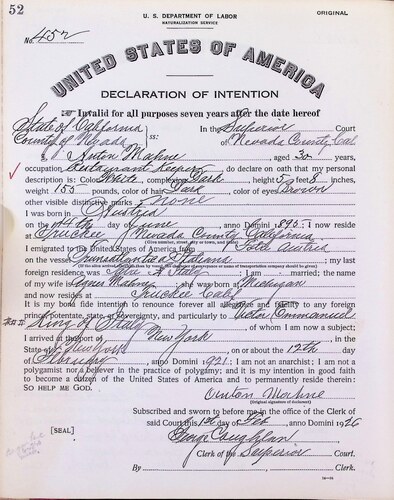 52
U. S. DEPARTMENT OF LABOR
NATURALIZATION SERVICE
ORIGINAL
No. 452
UNITED STATES OF AMERICA
DECLARATION OF INTENTION
Invalid for all purposes seven years after the date hereof
State of California
County of Nevada
ss:
In the Superior Court
of Nevada County Cal
I, Anton Mahne, aged 30 years,
occupation Restaurant Keeper, do declare on oath that my personal
description is: Color White, complexion Dark, height 5 feet 8 inches,
weight 155 pounds, color of hair Dark, color of eyes Brown
other visible distinctive marks None
I was born in Austria
on the 14th day of June, anno Domini 1895; I now reside
at Truckee Nevada County California
(Give number, street, city or town, and State.)
I emigrated to the United States of America from Austria
on the vessel Transatlantica Italiana; my last
foreign residence was Italy; I am married; the name
of my wife is Agnes Mahne; she was born at Michigan
and now resides at Truckee Calif
It is my bona fide intention to renounce forever all allegiance and fidelity to any foreign
prince, potentate, state, or sovereignty, and particularly to Victor Emmanuel
King of Italy, of whom I am now a subject;
I arrived at the port of New York, in the
State of New York, on or about the 12th day
of, anno Domini 1921; I am not an anarchist; I am not a
polygamist nor a believer in the practice of polygamy; and it is my intention in good faith
to become a citizen of the United States of America and to permanently reside therein:
SO HELP ME GOD.
Anton Mahne
(Original signature of declarant)
Subscribed and sworn to before me in the office of the Clerk of
said Court this 1st day of Feb, anno Domini 1926
[SEAL]
George Coughlan
Clerk of the Superior Court.
By, Clerk.